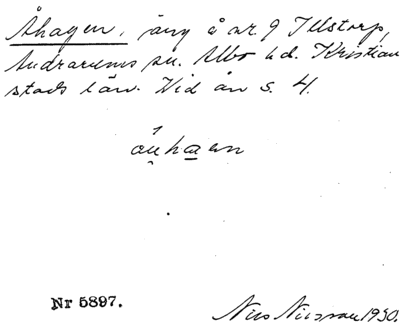 Åhagen, äng å nr 9 Illstorp,
Andrarums sn. Albo hd. Kristian
stads län. Vid ån s. 4.
Nr 5897.
Nils Nilsson 1930.